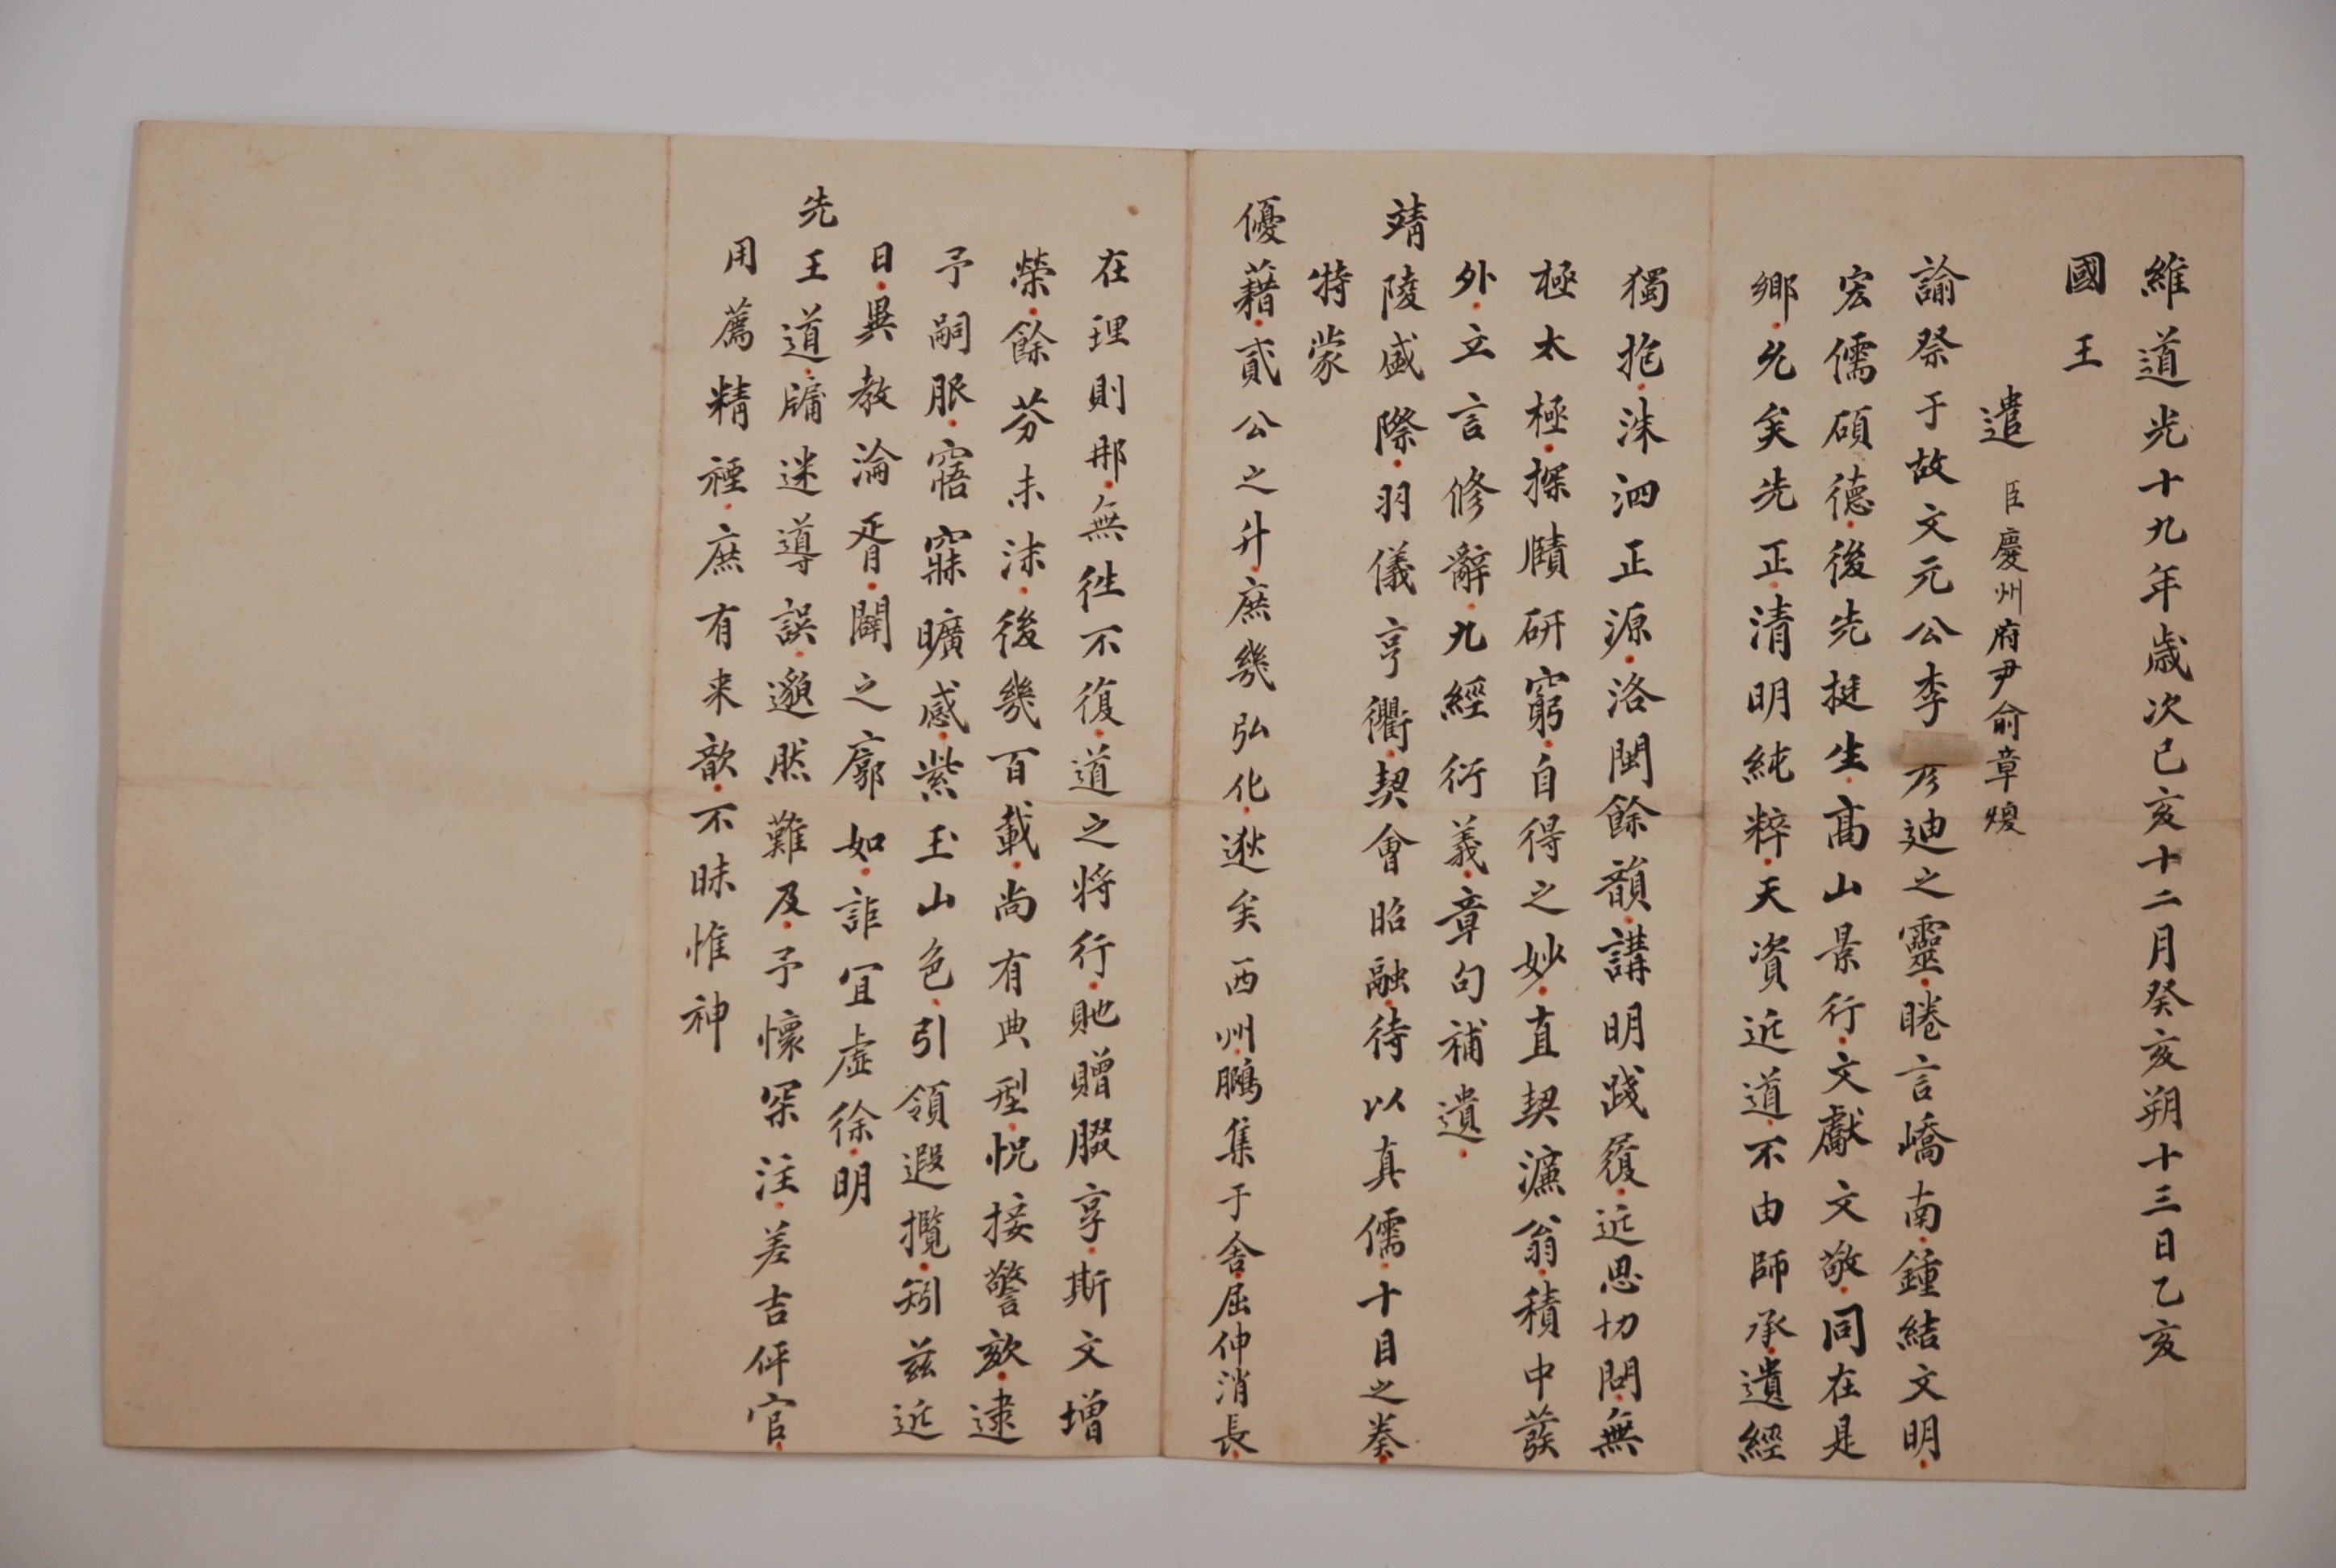 維道光十九年歲次己亥十二月癸亥朔十三日乙亥
國王
遣臣慶州府尹俞章煥
諭祭于故文元公李彦迪之靈睠言嶠南鍾結文明
宏儒碩德後先挺生高山景行文獻文敬同在是
鄉允矣先正清明純粹天資近道不由師承遺經
獨抱洙泗正源洛閩餘韻講明踐履近思切問無
極太極探賾研窮自得之妙直契濂翁積中發
外立言修辭九經衍義章句補遺
靖陵盛際羽儀亨衢契會昭融待以真儒十目之奏
特蒙
優藉貳公之升庶幾弘化逖矣西州鵩集于舍屈伸消長
在理則那無徃不復道之將行貤贈腏享斯文增
榮餘芬未沫後幾百載尚有典型怳接警欬逮
予嗣服寤寐曠感紫玉山色引領遐攬矧茲近
日異教淪胥闢之廓如詎宜虛徐明
先王道牖迷導誤邈然難及予懷罙注差吉伻官
用薦精禋庶有来歆不昧惟神